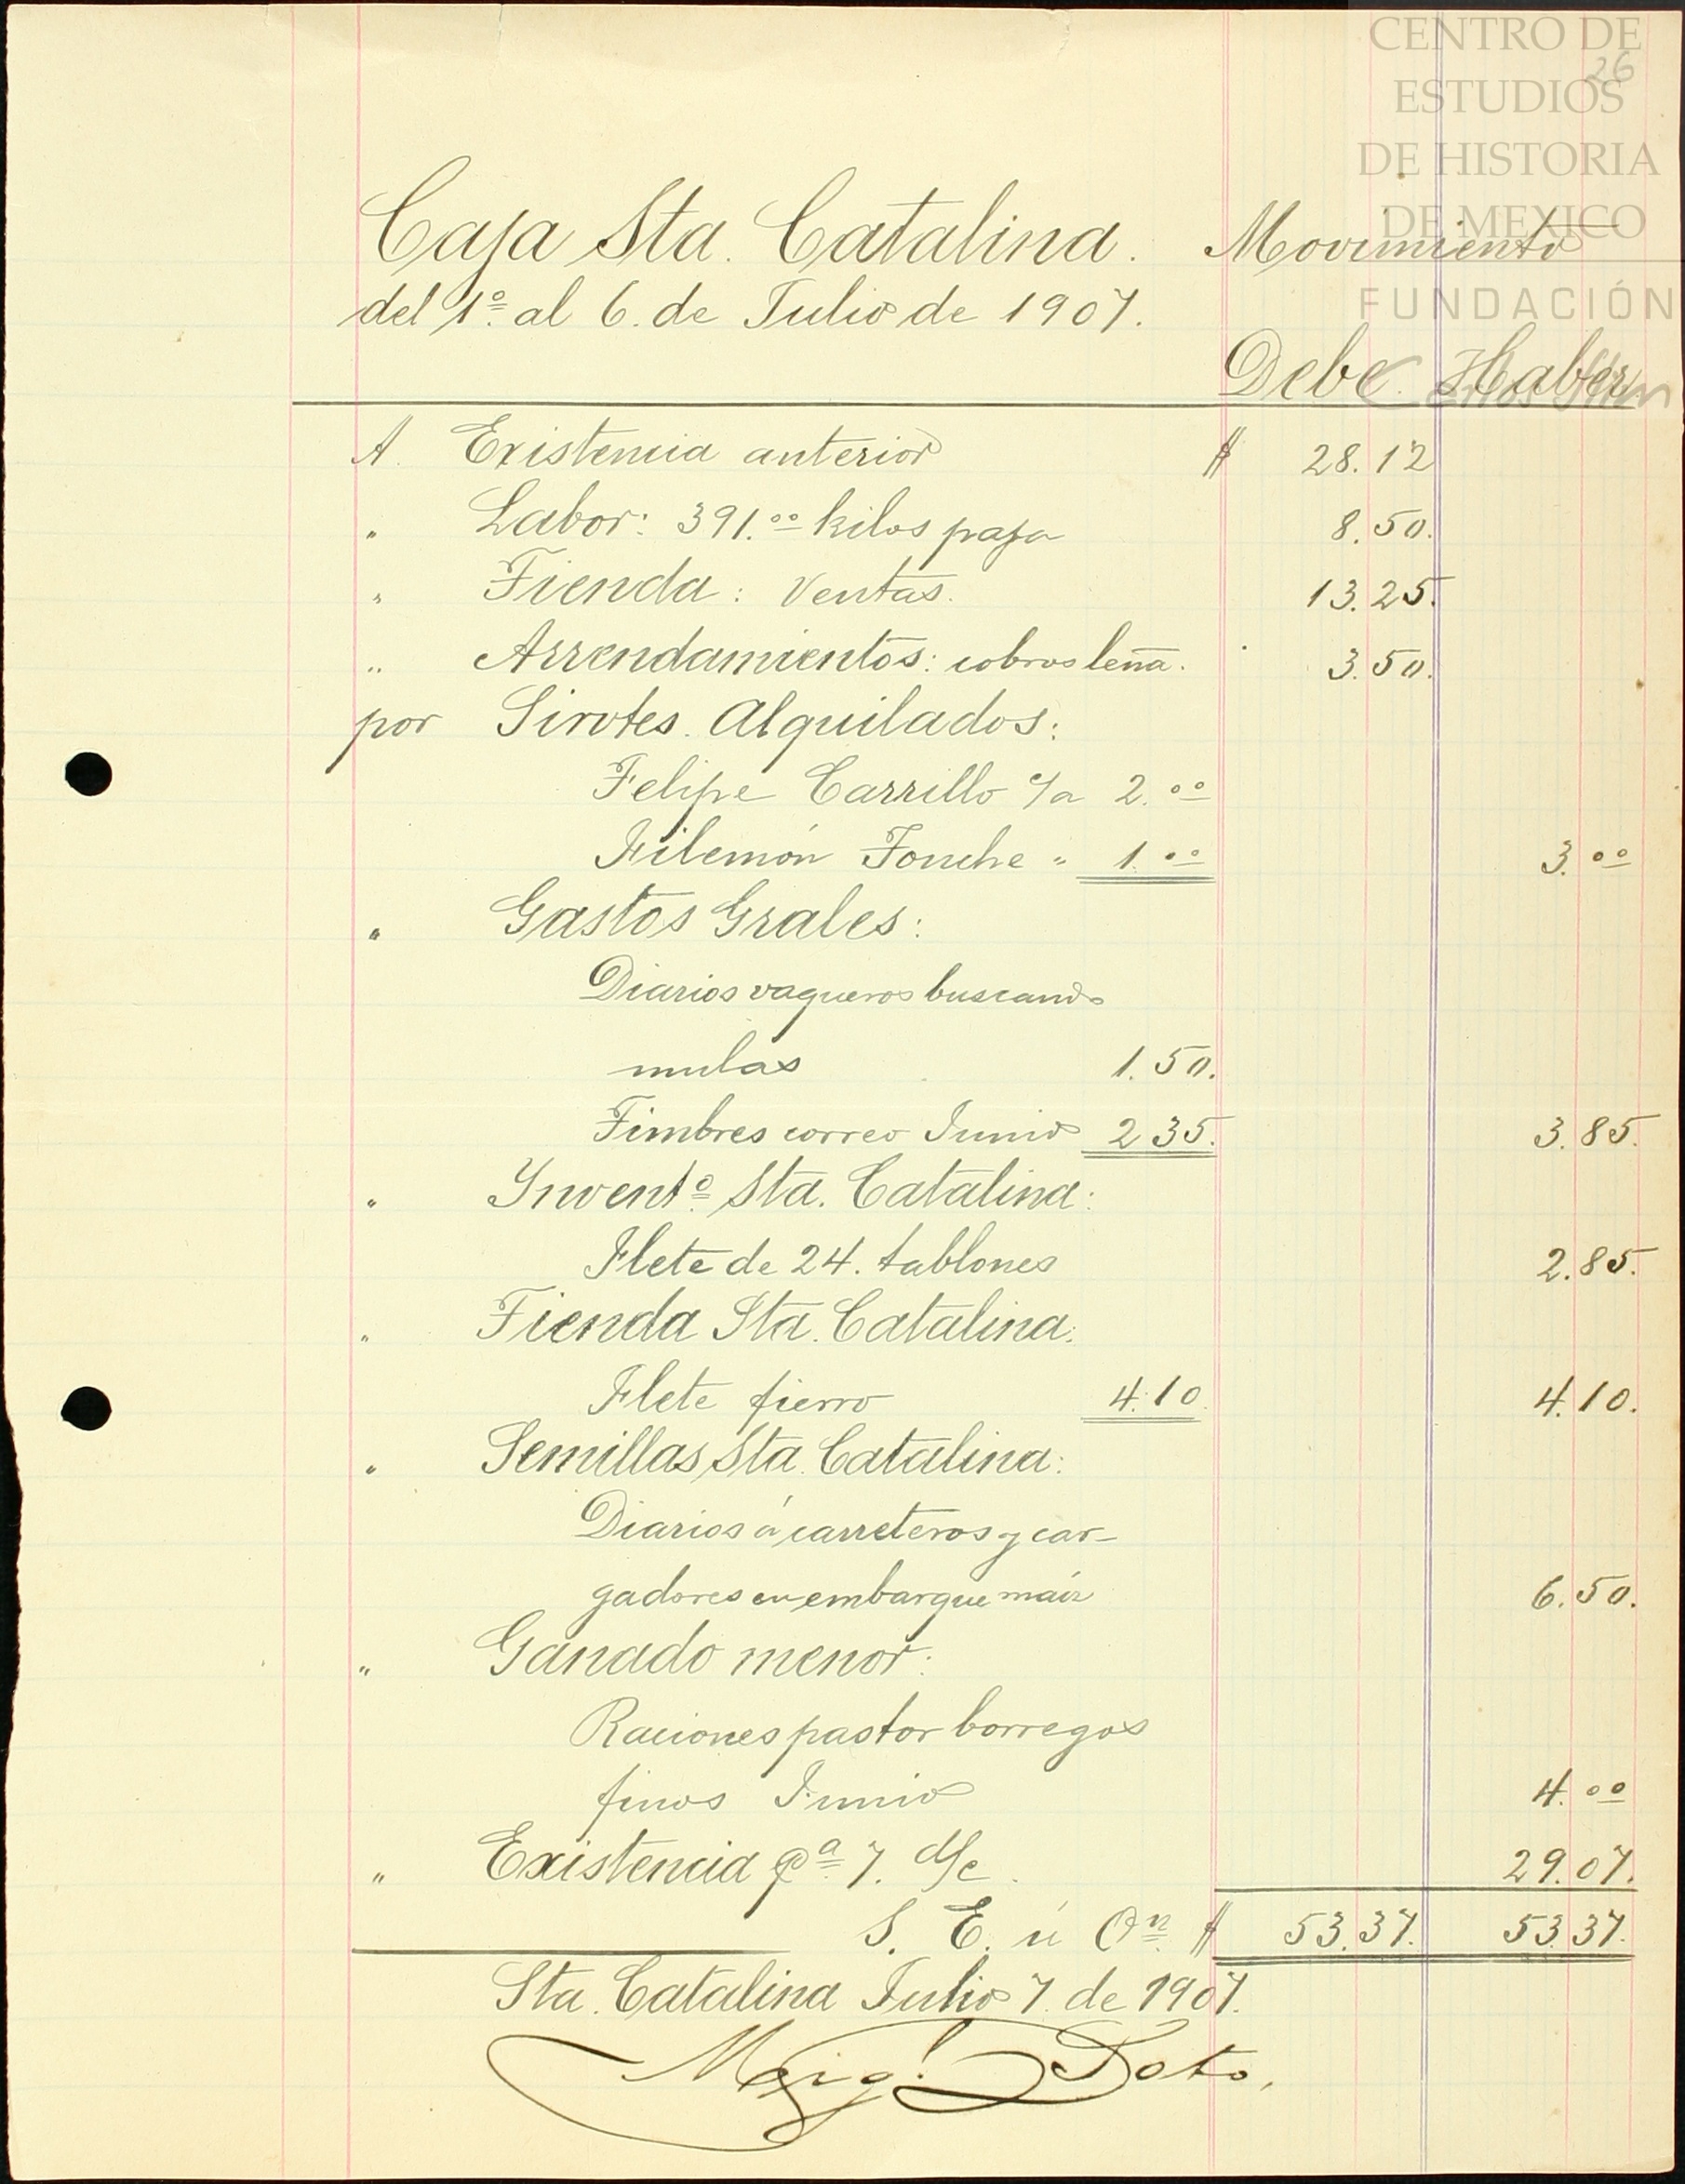 CENTRO DE
ESTUDIOS
DE HISTORIA
DE MEXICO
FUNDACIÓN
26
Caja Sta. Catalina. Movimiento
del 1º al 6. de Julio de 1907.
Debe. Haber.
A. Existencia anterior $ 28.12
" Labor: 391.00 kilos paja 8.50.
" Tienda: Ventas. 13.25.
" Arrendamientos: cobros leña. 3.50.
por Sirvtes. Alquilados:
Felipe Carrillo c/a 2.00
Filemón Fonche " 1.00 3.00
" Gastos Grales:
Diarios vaqueros buscando
mulas 1.50.
Timbres correo Junio 2 35. 3.85.
" Ynventº Sta. Catalina:
Flete de 24. tablones 2.85.
" Tienda Sta. Catalina:
Flete fierro 4.10. 4.10.
" Semillas Sta. Catalina:
Diarios á carreteros y car-
gadores en embarque maíz 6.50.
" Ganado menor:
Raciones pastor borregos
finos Junio 4.00
" Existencia pª 7. d/c. 29.07.
S. E. ú On. $ 53.37. 53 37.
Sta. Catalina Julio 7. de 1907.
Migl. Soto.